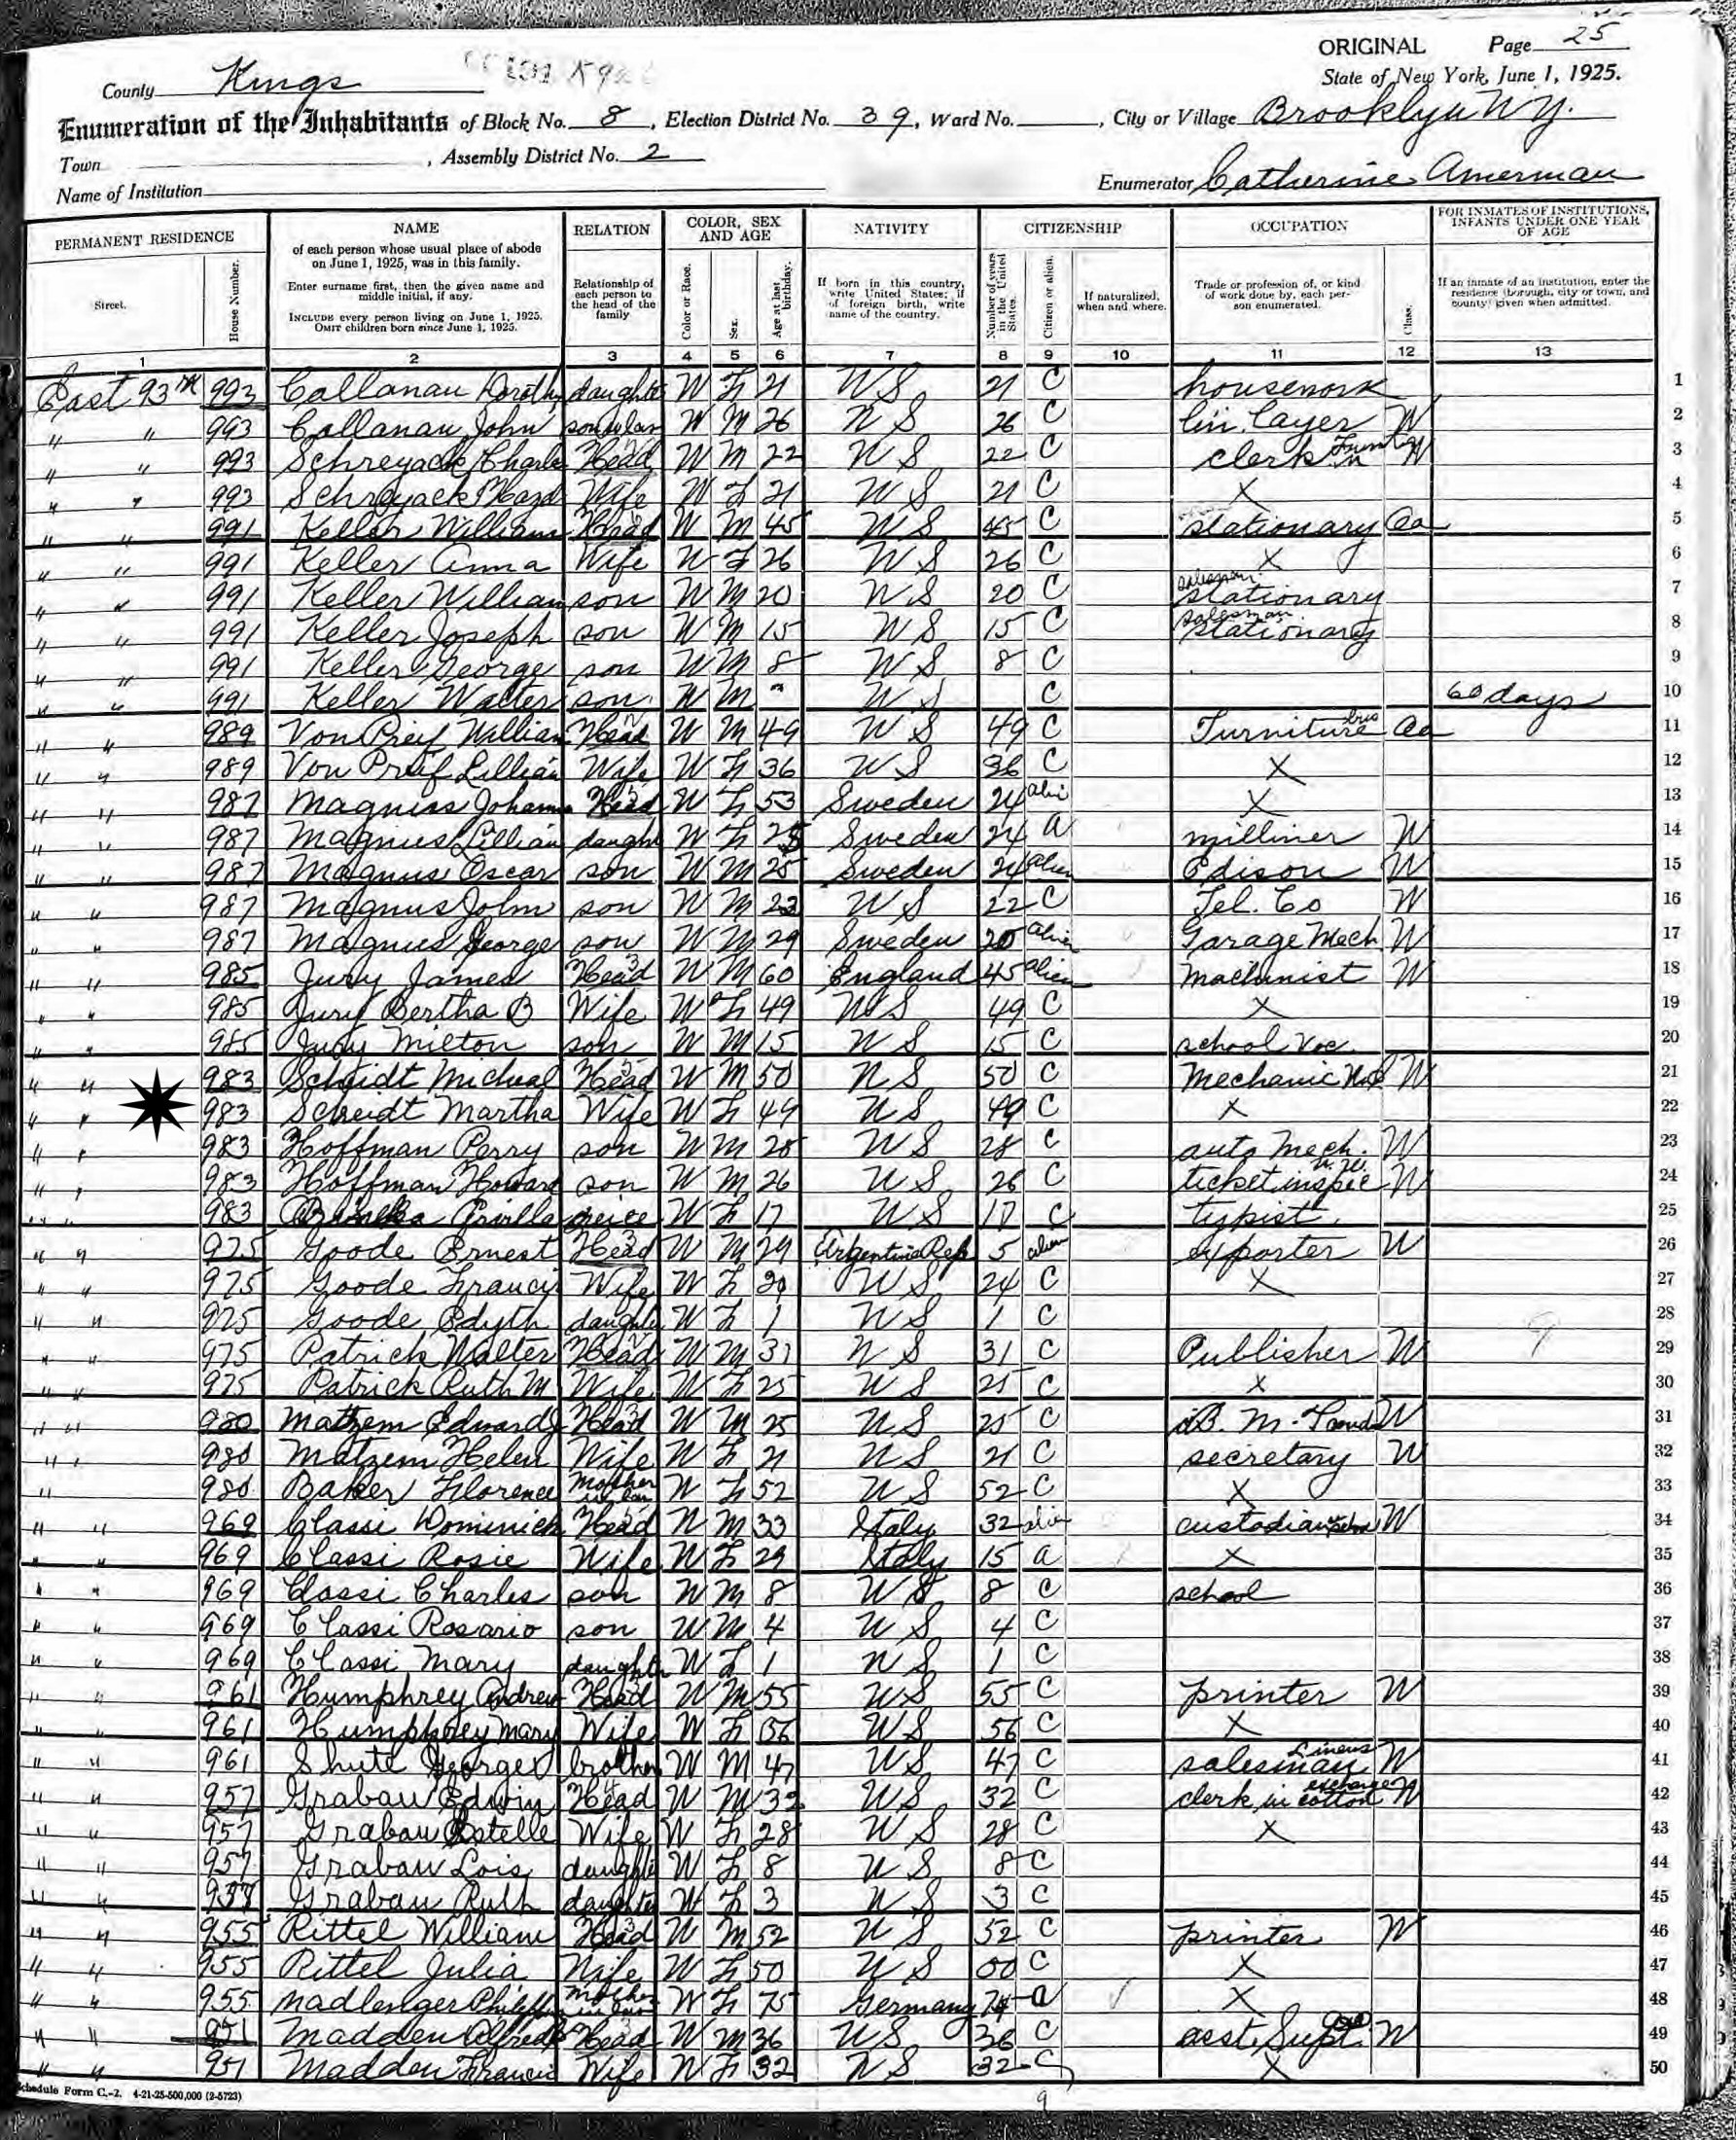 ORIGINAL Page 25
County Kings State of New York, June 1, 1925.
Enumeration of the Inhabitants of Block No. 8, Election District No. 39, Ward No. , City or Village Brooklyn N.Y.
Town , Assembly District No. 2
Name of Institution Enumerator Catherine Amerman
PERMANENT RESIDENCE NAME RELATION COLOR, SEX AND AGE NATIVITY CITIZENSHIP OCCUPATION FOR INMATES OF INSTITUTIONS, INFANTS UNDER ONE YEAR OF AGE
Street. House Number. of each person whose usual place of abode on June 1, 1925, was in this family. Enter surname first, then the given name and middle initial, if any. INCLUDE every person living on June 1, 1925. OMIT children born since June 1, 1925. Relationship of each person to the head of the family Color or Race. Sex. Age at last birthday. If born in this country, write United States; if of foreign birth, write name of the country. Number of years in the United States. Citizen or alien. If naturalized, when and where. Trade or profession of, or kind of work done by, each person enumerated. Class. If an inmate of an institution, enter the residence (borough, city or town, and county) given when admitted.
1 2 3 4 5 6 7 8 9 10 11 12 13
East 93rd 993 Callanan Dorothy daughter W F 21 U S 21 C housework 1
" " 993 Callanan John son in law W M 26 U S 26 C Layer W 2
" " 993 Schreyack Charles Head W M 22 U S 22 C clerk W 3
" " 993 Schreyack Hazel Wife W F 21 U S 21 C X 4
" " 991 Keller William Head W M 45 U S 45 C stationary Oa 5
" " 991 Keller Anna Wife W F 26 U S 26 C X 6
" " 991 Keller William son W M 20 U S 20 C salesman stationary 7
" " 991 Keller Joseph son W M 15 U S 15 C salesman stationary 8
" " 991 Keller George son W M 8 U S 8 C 9
" " 991 Keller Walter son W M U S C 60 days 10
" " 989 Von Preif William Head W M 49 U S 49 C Furniture bus Oa 11
" " 989 Von Preif Lillian Wife W F 36 U S 36 C X 12
" " 987 Magnus Johanna Head W F 53 Sweden 24 X 13
" " 987 Magnus Lillian daught W F 25 Sweden 24 a milliner W 14
" " 987 Magnus Oscar son W M 25 Sweden 24 alien Edison W 15
" " 987 Magnus John son W M 22 U S 22 C Tel. Co W 16
" " 987 Magnus George son W M 29 Sweden 25 alien Garage Mech W 17
" " 985 Jury James Head W M 60 England 45 alien machinist W 18
" " 985 Jury Bertha B Wife W F 49 U S 49 C X 19
" " 985 Jury Milton son W M 15 U S 15 C school Voc. 20
" " 983 Scheidt Micheal Head W M 50 U S 50 C Mechanic W 21
" " 983 Scheidt Martha Wife W F 49 U S 49 C X 22
" " 983 Hoffman Perry son W M 28 U S 28 C auto Mech. W 23
" " 983 Hoffman Howard son W M 26 U S 26 C ticket inspec W 24
" " 983 neice W F 17 U S 17 C typist 25
" " 975 Goode Ernest Head W M 29 Argentine Rep 5 alien exporter W 26
" " 975 Goode Francis Wife W F U S 24 C X 27
" " 975 Goode Edyth daughter W F 1 U S 1 C 28
" " 975 Patrick Walter Head W M 31 U S 31 C Publisher W 29
" " 975 Patrick Ruth M Wife W F 25 U S 25 C X 30
" " 980 Matzem Edward Head W M 25 U S 25 C W 31
" " 980 Matzem Helen Wife W F 21 U S 21 C secretary W 32
" 980 Baker Florence Mother in law W F 52 U S 52 C X 33
" " 969 Classi Dominick Head W M 33 Italy 32 alien custodian W 34
" " 969 Classi Rosie Wife W F 29 Italy 15 a X 35
" " 969 Classi Charles son W M 8 U S 8 C school 36
" " 969 Classi Rosario son W M 4 U S 4 C 37
" " 969 Classi Mary daughter W F 1 U S 1 C 38
" " 961 Humphrey Andrew Head W M 55 U S 55 C printer W 39
" " 961 Humphrey Mary Wife W F 56 U S 56 C X 40
" " 961 Shute George brother W M 47 U S 47 C salesman Linens W 41
" " 957 Grabau Edwin Head W M 32 U S 32 C clerk in cotton exchange W 42
" " 957 Grabau Estelle Wife W F 28 U S 28 C X 43
" " 957 Grabau Lois daughter W F 8 U S 8 C 44
" " 957 Grabau Ruth daughter W F 3 U S 3 C 45
" " 955 Rittel William Head W M 52 U S 52 C printer W 46
" " 955 Rittel Julia Wife W F 50 U S 50 C X 47
" " 955 Madlenger Mother in law W F 75 Germany 74 a X 48
" " 951 Madden Alfred Head W M 36 U S 36 C asst. Supt. W 49
" " 951 Madden Francis Wife W F 32 U S 32 C X 50
Schedule Form C.-2. 4-21-25-500,000 (2-5723)
9